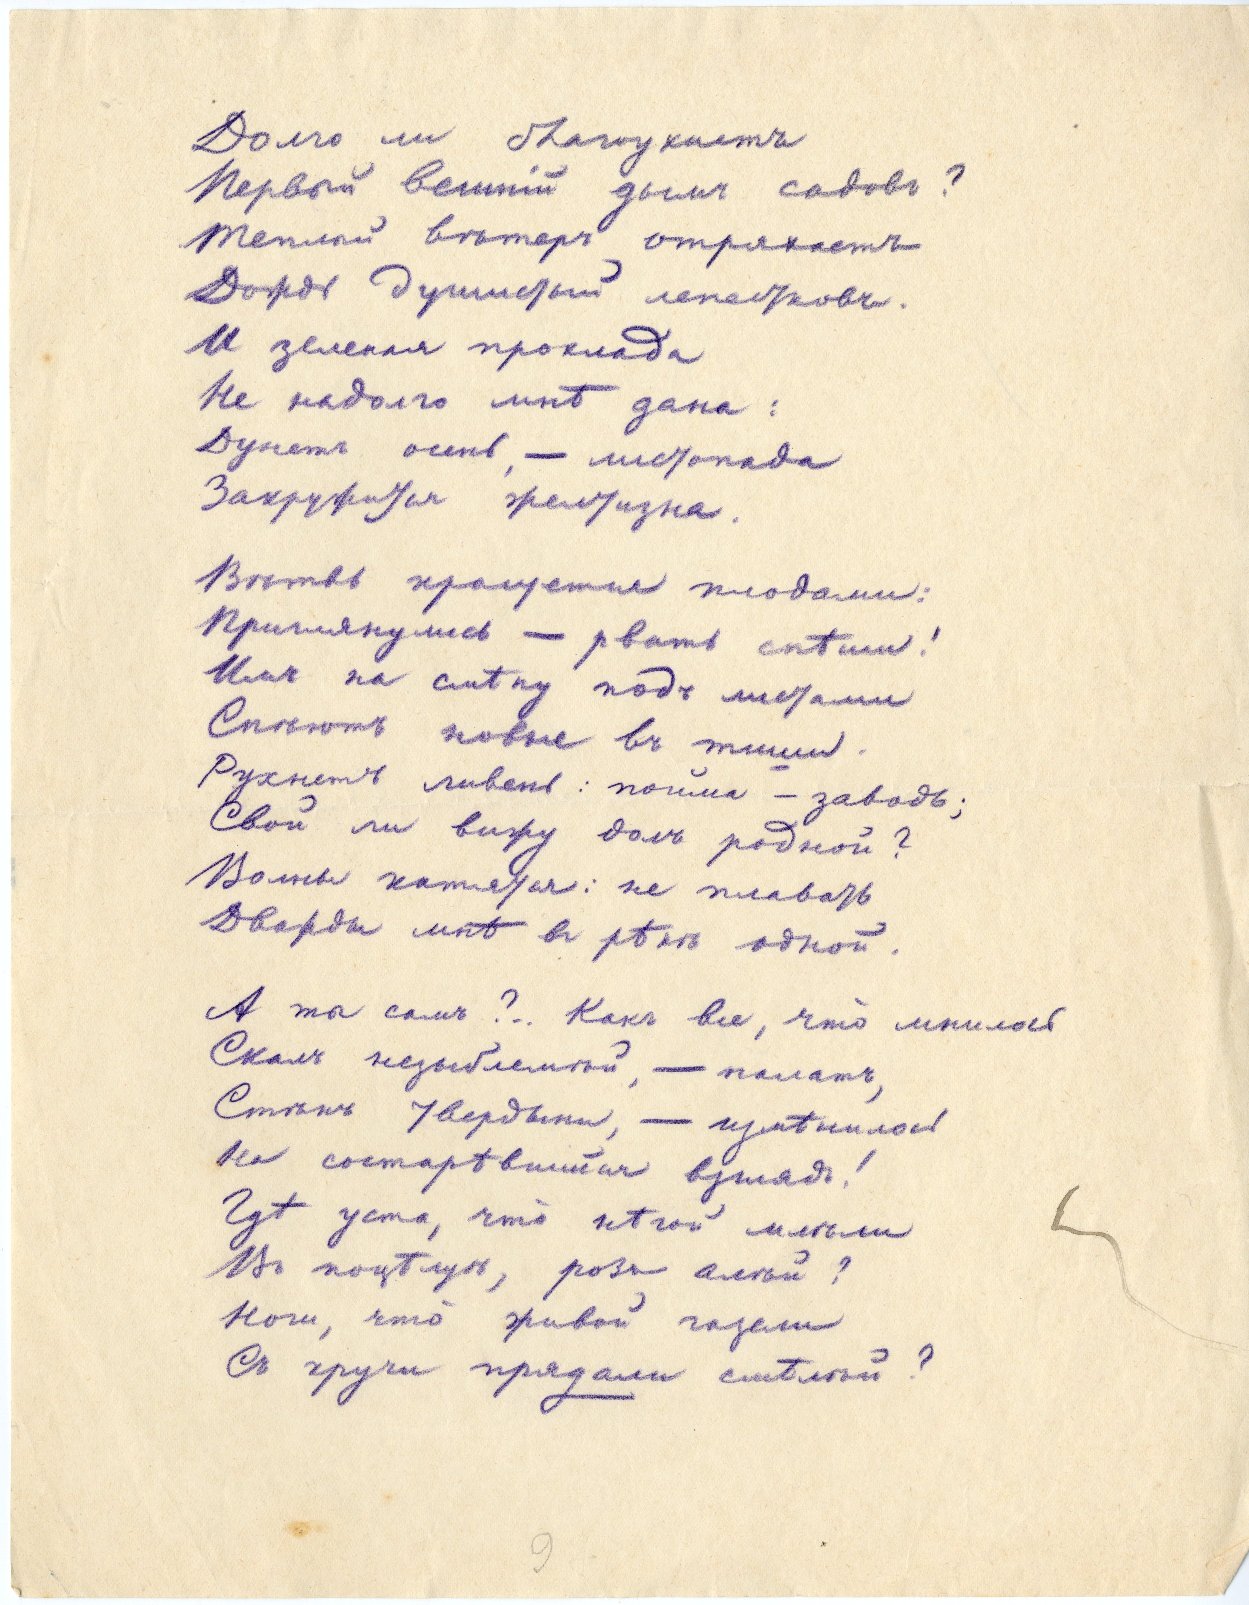 Долго ли благоухаетъ
Первый вешній дымъ садовъ?
Теплый вѣтеръ отряхаетъ
Дождь душистый лепестковъ.
И зеленая прохлада
Не надолго мнѣ дана:
Дунетъ осень, — листопада
Закружится желтизна.
Вѣтвь красуется плодами:
Приглянулись — рвать спѣши!
Иль на смѣну подъ листами
Спѣютъ новые въ тиши.
Рухнетъ ливень: пойма — заводь;
Свой ли вижу долъ родной?
Волны катятся: не плавать
Дважды мнѣ въ рѣкѣ одной.
А ты самъ?.. Какъ все, что̀ мнилось
Скалъ незыблемѣй, — палатъ,
Стѣнъ твердыни, — измѣнилось
На состарѣвшійся взглядъ!
Гдѣ уста, что̀ нѣгой млѣли
Въ поцѣлуѣ, розъ алѣй?
Ноги, что̀ живой газели
Съ кручи прядали смѣлѣй?
9